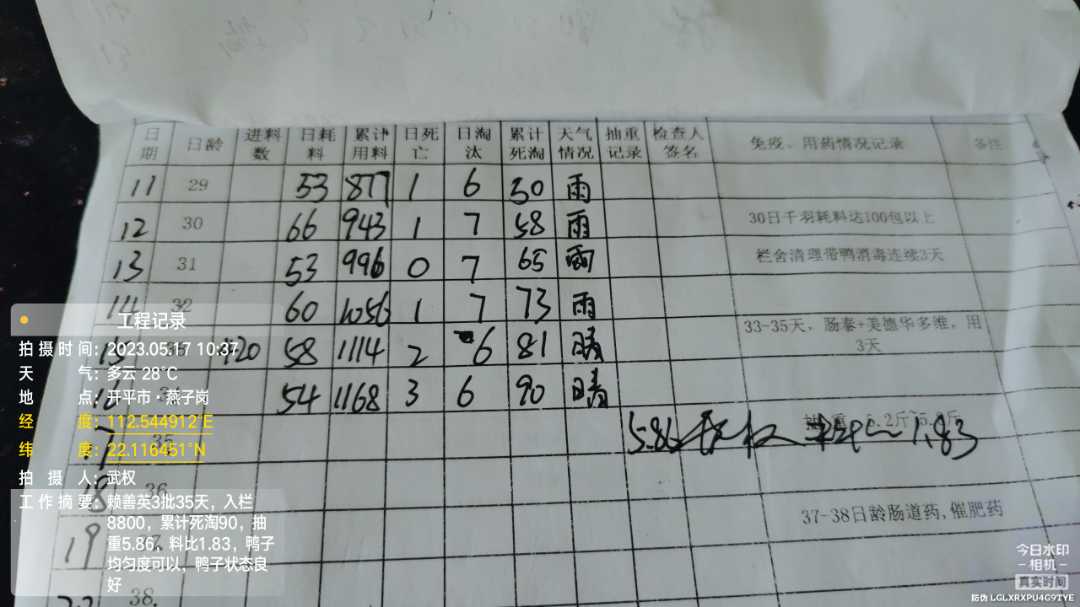 日期 日龄 进料数 日耗料 累计用料 日死亡 日淘汰 累计死淘 天气情况 抽重记录 检查人签名 免疫、用药情况记录 备注
11 29 53 877 1 6 50 雨
12 30 66 943 1 7 58 雨 30日千羽耗料达100包以上
13 31 53 996 0 7 65 雨 栏舍清理带鸭消毒连续3天
14 32 60 1056 1 7 73 雨
15 58 1114 2 6 81 晴 33-35天，肠泰+美德华多维，用3天
54 1168 3 6 90 晴
35 5.86 1.83
18 36
37-38日龄肠道药、催肥药
19
38
工程记录
拍摄时间：2023.05.17 10:37
天气：多云 28°C
地点：开平市·燕子岗
经度：112.544912°E
纬度：22.116451°N
拍摄人：武权
工作摘要：赖善英3批35天，入栏
8800，累计死淘90，抽
重5.86，料比1.83，鸭子
均匀度可以，鸭子状态良
好
今日水印
-相机-
真实时间
防伪 LGLXRXPU4G9TYE